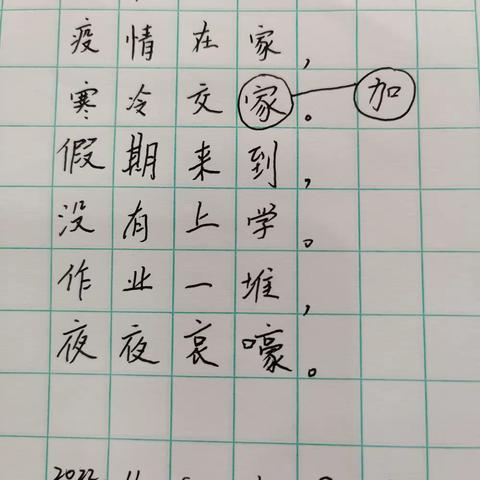 疫情在家，
寒冷交家。加
假期来到，
没有上学。
作业一堆，
夜夜哀嚎。
2022